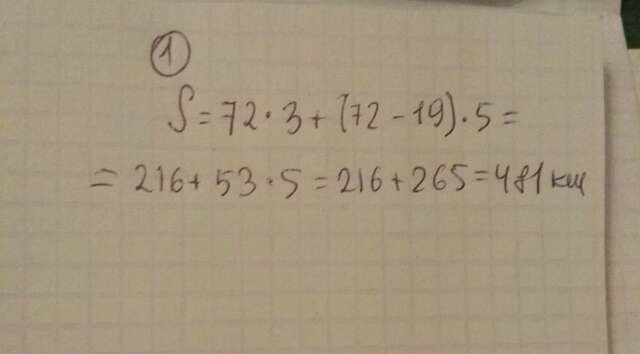 1
S = 72 · 3 + (72 - 19) · 5 =
= 216 + 53 · 5 = 216 + 265 = 481 км